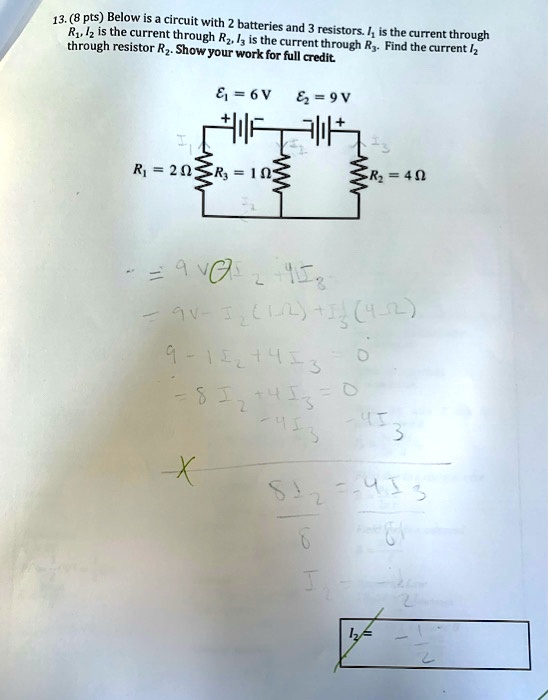 13. (8 pts) Below is a circuit with 2 batteries and 3 resistors. I₁ is the current through
R₁, I₂ is the current through R₂, I₃ is the current through R₃. Find the current I₂
through resistor R₂. Show your work for full credit.
ℰ₁ = 6 V ℰ₂ = 9 V
+ - - +
I₁ I₂ I₃
R₁ = 2 Ω R₃ = 1 Ω R₂ = 4 Ω
= 9V - I₂ 4I₃
= 9V - I₂(1Ω) + I₃(4Ω)
9 - 1I₂ + 4I₃ = 0
= 8I₂ + 4I₃ = 0
-4I₃ -4I₃
X
8I₂ = -4I₃
8 8
I₂ = -1/2
I₂ = -1/2